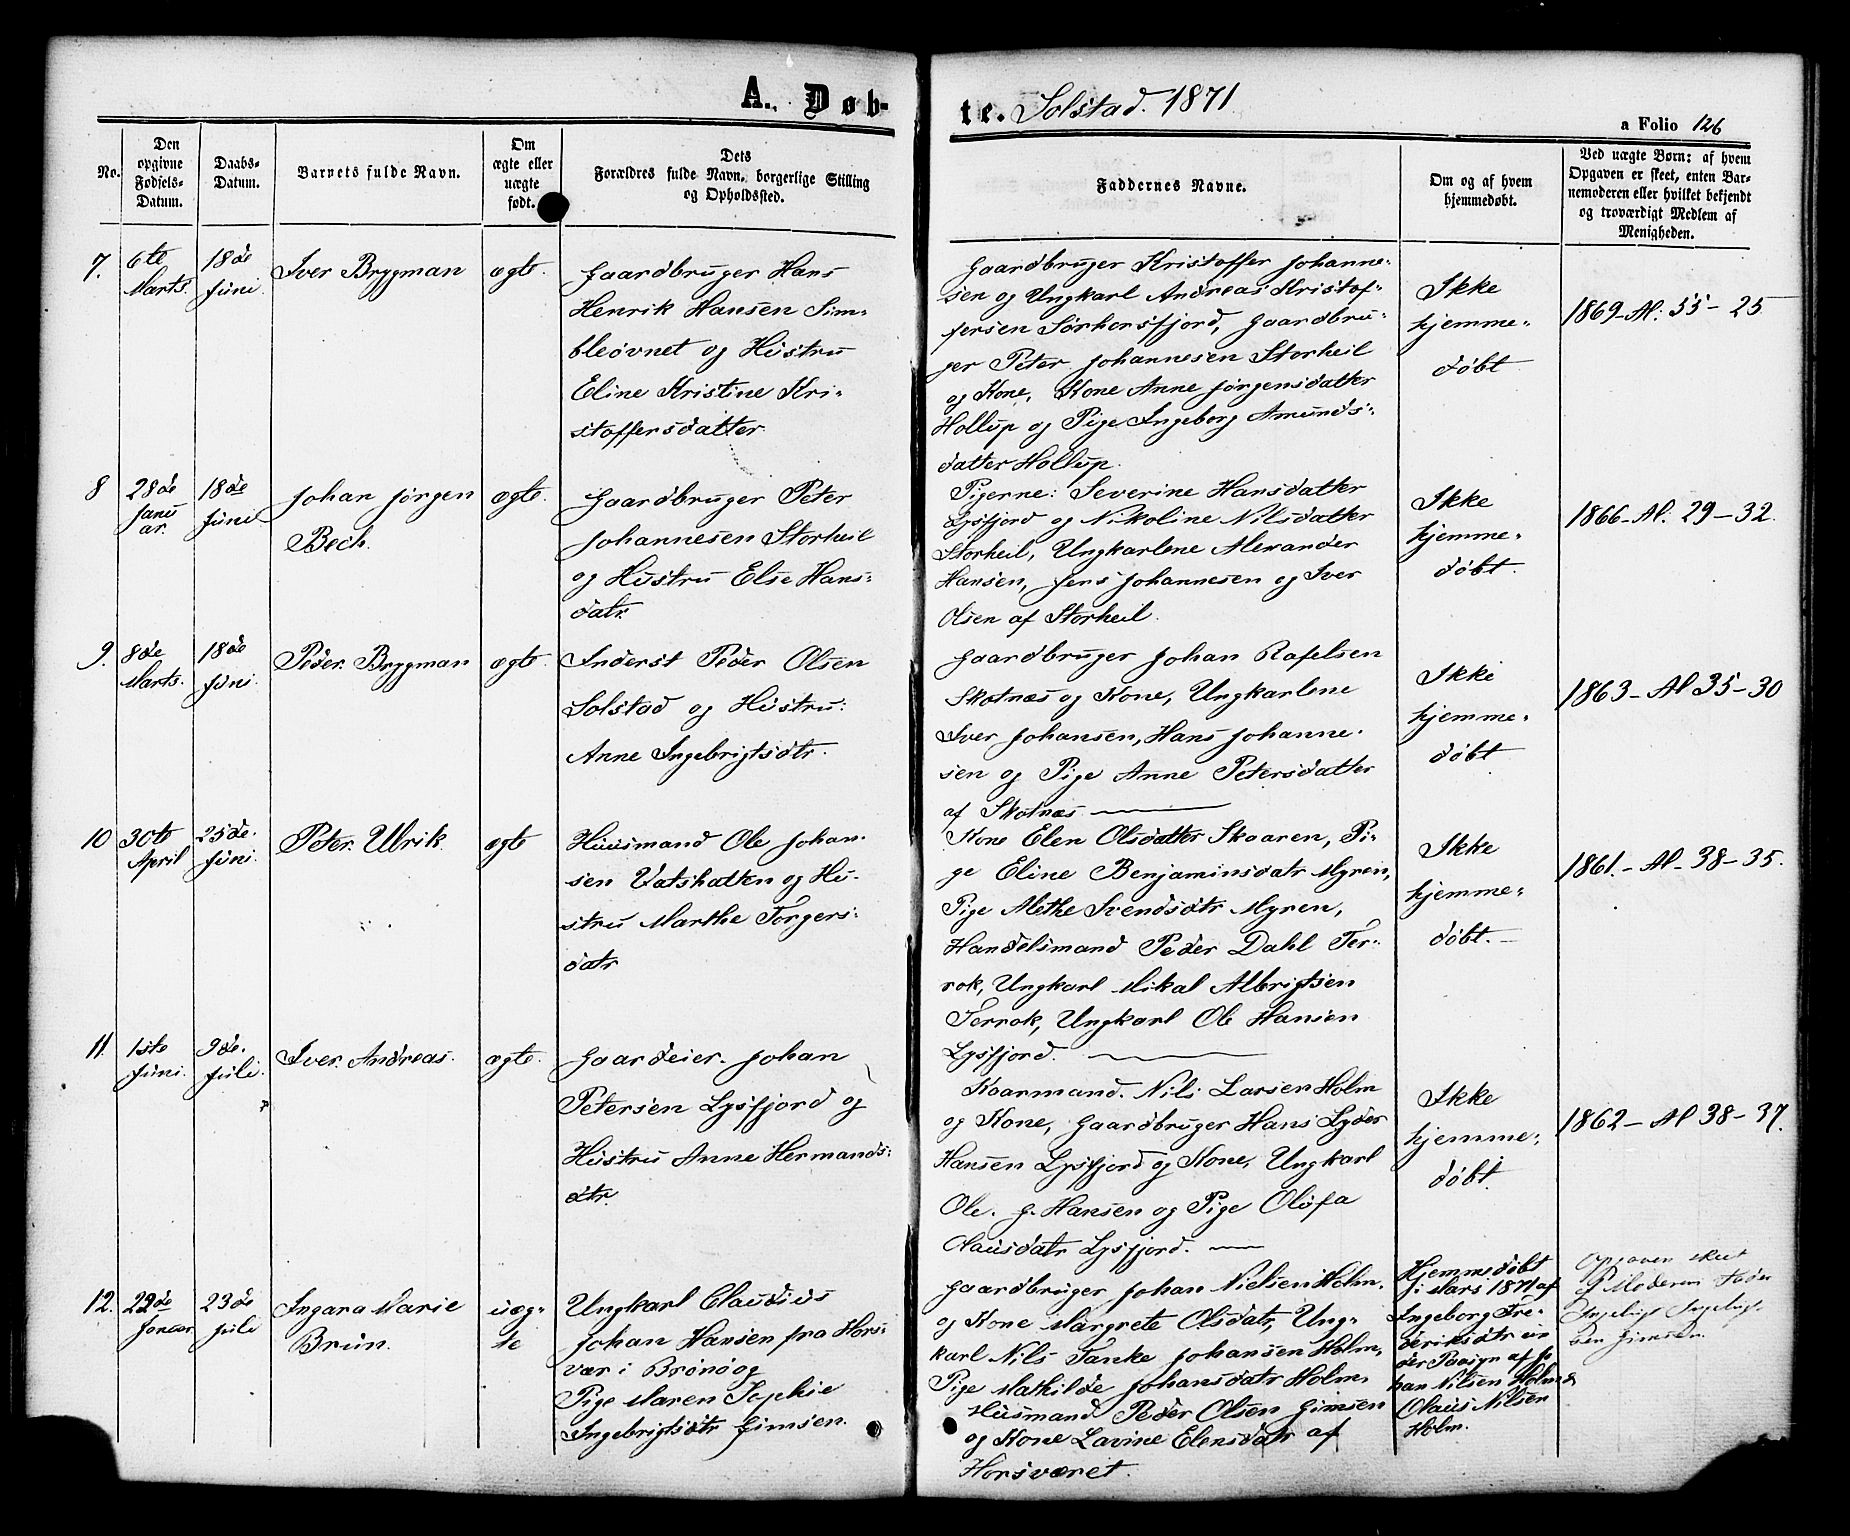 A. Døb-
te. Solstad. 1871
a Folio 126
No.
Den
opgivne
Fødsels-
Datum.
Daabs-
Datum.
Barnets fulde Navn.
Om
ægte eller
uægte
født.
Dets
Forældres fulde Navn, borgerlige Stilling
og Opholdssted.
Faddernes Navne.
Om og af hvem
hjemmedøbt.
Ved uægte Børn: af hvem
Opgaven er skeet, enten Bar-
nemoderen eller hvilket bekjendt
og troværdigt Medlem af
Menigheden.
7.
6te
Marts.
18de
Juni.
Iver Brygman
ægte.
Gaardbruger Hans
Henrik Hansen Sim-
bleøvnet og Hustru
Eline Kristine Kri-
stoffersdatter.
Gaardbruger Kristoffer Johanne-
sen og Ungkarl Andreas Kristof-
fersen Sørhorsfjord, Gaardbru-
ger Peter Johannesen Storheil
og Kone, Kone Anne Jørgensdatter
Hollup og Pige Ingeborg Amunds-
datter Hollup.
Ikke
hjemme-
døbt.
1869-Al: 55-25
8
28de
Janu
ar.
18de
Juni
Johan Jørgen
Bech.
ægte.
Gaardbruger Peter
Johannesen Storheil
og Hustru Else Hans-
datr.
Pigerne: Severine Hansdatter
Lysfjord og Nikoline Nilsdatter
Storheil, Ungkarlene Alexander
Hansen, Jens Johannesen og Iver
Olsen af Storheil.
Ikke
hjemme-
døbt.
1866-Al. 29-32.
9.
8de
Marts.
18de
Juni.
Peder. Brygman
ægte.
Inderst Peder Olsen
Solstad og Hustru:
Anne Ingebrigtsdtr.
Gaardbruger Johan Rafelsen
Skotnæs og Kone, Ungkarlene
Iver Johansen, Hans Johanne-
sen og Pige Anne Petersdatter
af Skotnæs
Ikke
hjemme-
døbt
1863-Al 35-30
10
30te
April
25de.
Juni.
Peter. Ulrik.
ægte
Huusmand Ole Johan-
sen Vatshatten og Hu-
stru Marthe Torgers-
datr
Kone Elen Olsdatter Skaaren, Pi-
ge Eline Benjaminsdatr Myren,
Pige Alethe Svendsdtr Myren,
Handelsmand Peder Dahl Ter-
rok, Ungkarl Mikal Albrigtsen
Terrok, Ungkarl Ole Hansen
Lysfjord.
Ikke
hjemme-
døbt.
1861.-Al-38-35.
11.
1ste
Juni.
9de.
Juli.
Iver. Andreas.
ægte.
Gaardeier. Johan
Petersen Lysfjord og
Hustru Anne Hermands-
dtr.
Kaarmand. Nils Larsen Holm
og Kone, Gaardbruger Hans Lyder
Hansen Lysfjord og Kone, Ungkarl
Ole. J. Hansen og Pige Olufa
Olausdatr Lysfjord.
Ikke
hjemme-
døbt.
1862-Al 38-37.
12.
22de
Januar
23de
Juli
Ingara Marie
Brun.
uæg-
te
Ungkarl Claudius
Johan Hansen fra Hors-
vær i Brønø og
Pige Maren Sophie
Ingebrigtsdtr Gimsen.
Gaardbruger Johan Nielsen Holm.
og Kone Margrete Olsdatr, Ung-
karl Nils Tanke Johansen Holm,
Pige Mathilde Johansdatr Holm
Husmand Peder Olsen Gimsen
og Kone Lavine Elensdatr af
Horsværet.
Hjemmedøbt
Mars 1871 af
Ingeborg Fre-
deriksdtr un
der Paasyn af Jo
han Nilsen Holm
Olaus Nilsen
Holm.
Opgaven skeet
Moderens Fader